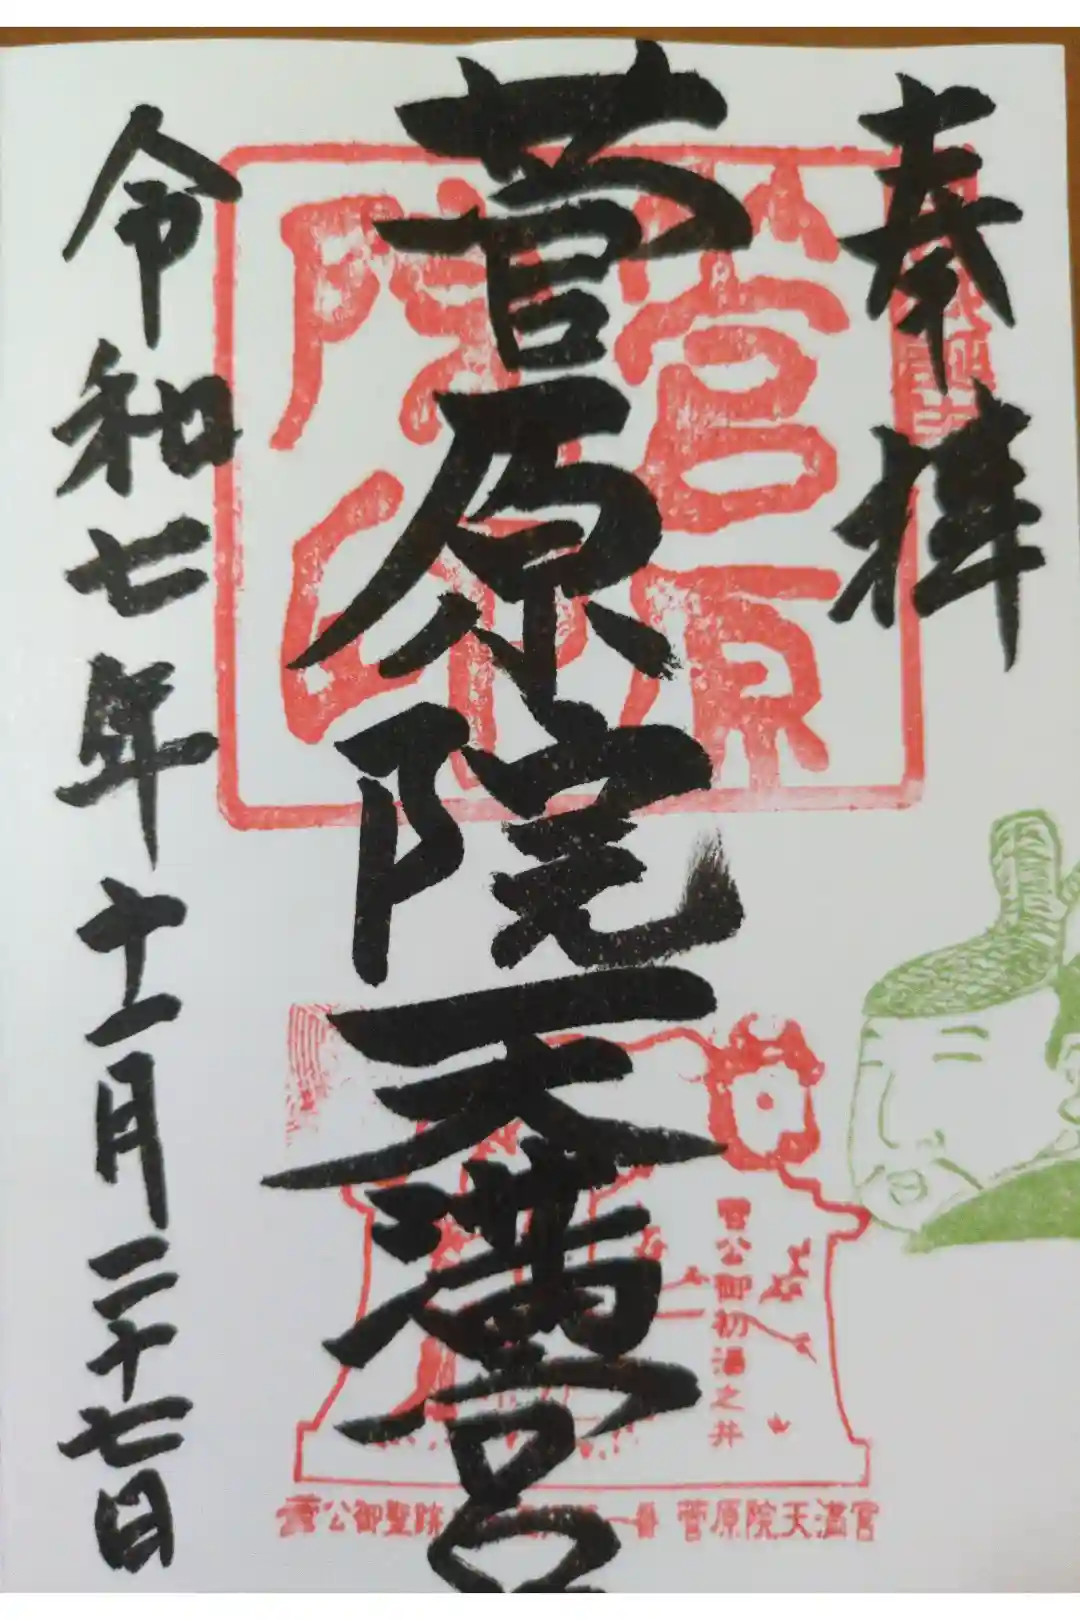 奉拝
菅原院天満宮
令和七年十一月二十七日
菅原院印
菅公御初湯之井
菅公御聖蹟
一番 菅原院天満宮